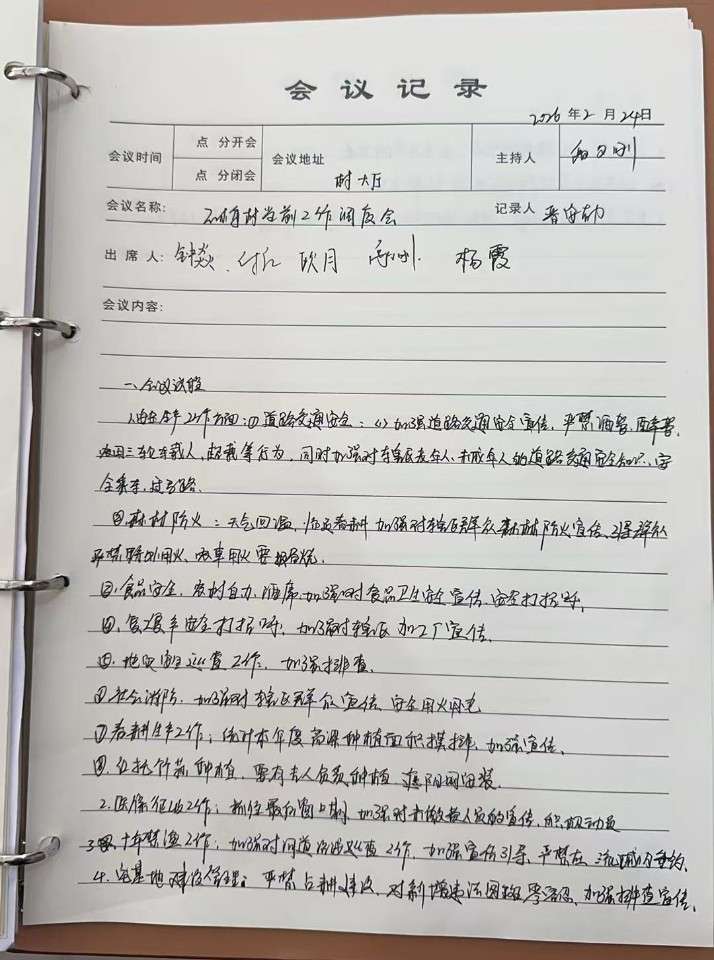 会议记录
2026年2月24日
会议时间 点 分开会 会议地址 主持人
点 分闭会 村大厅
会议名称: 村当前工作调度会 记录人
出席人: 钟焱、 杨霞
会议内容:
一、会议议题
1.安全生产工作方面:①道路交通安全:(1)加强道路交通安全宣传,严禁酒驾,醉驾,
三轮车载人,超载等行为,同时加强对辖区老年人、未成年人的道路交通安全知识,
全乘车,过马路.
②森林防火:天气回温,临近春耕加强对辖区群众森林防火宣传,引导群众
严禁野外用火、农事用火要报备.
③.食品安全,农村自办酒席加强对食品卫生安全宣传,安全打招呼,
④.复工复产安全打招呼,加强对辖区加工厂宣传.
⑤.地灾 巡查工作:加强排查.
⑥社会消防,加强对辖区群众宣传,安全用火用电
⑦春耕生产工作:统计本年度 种植面积摸排,加强宣传、
⑧. 竹荪种植,要有 人员 种植 遮阳网 装.
2.医保征收工作:抓住最后窗口期,加强对未缴费人员的宣传,积极动员
3.十年禁渔工作:加强对河道 巡查工作,加强宣传引导,严禁在
4.宅基地建设管理:严禁占耕建设,对新增违法 零容忍,加强排查宣传、